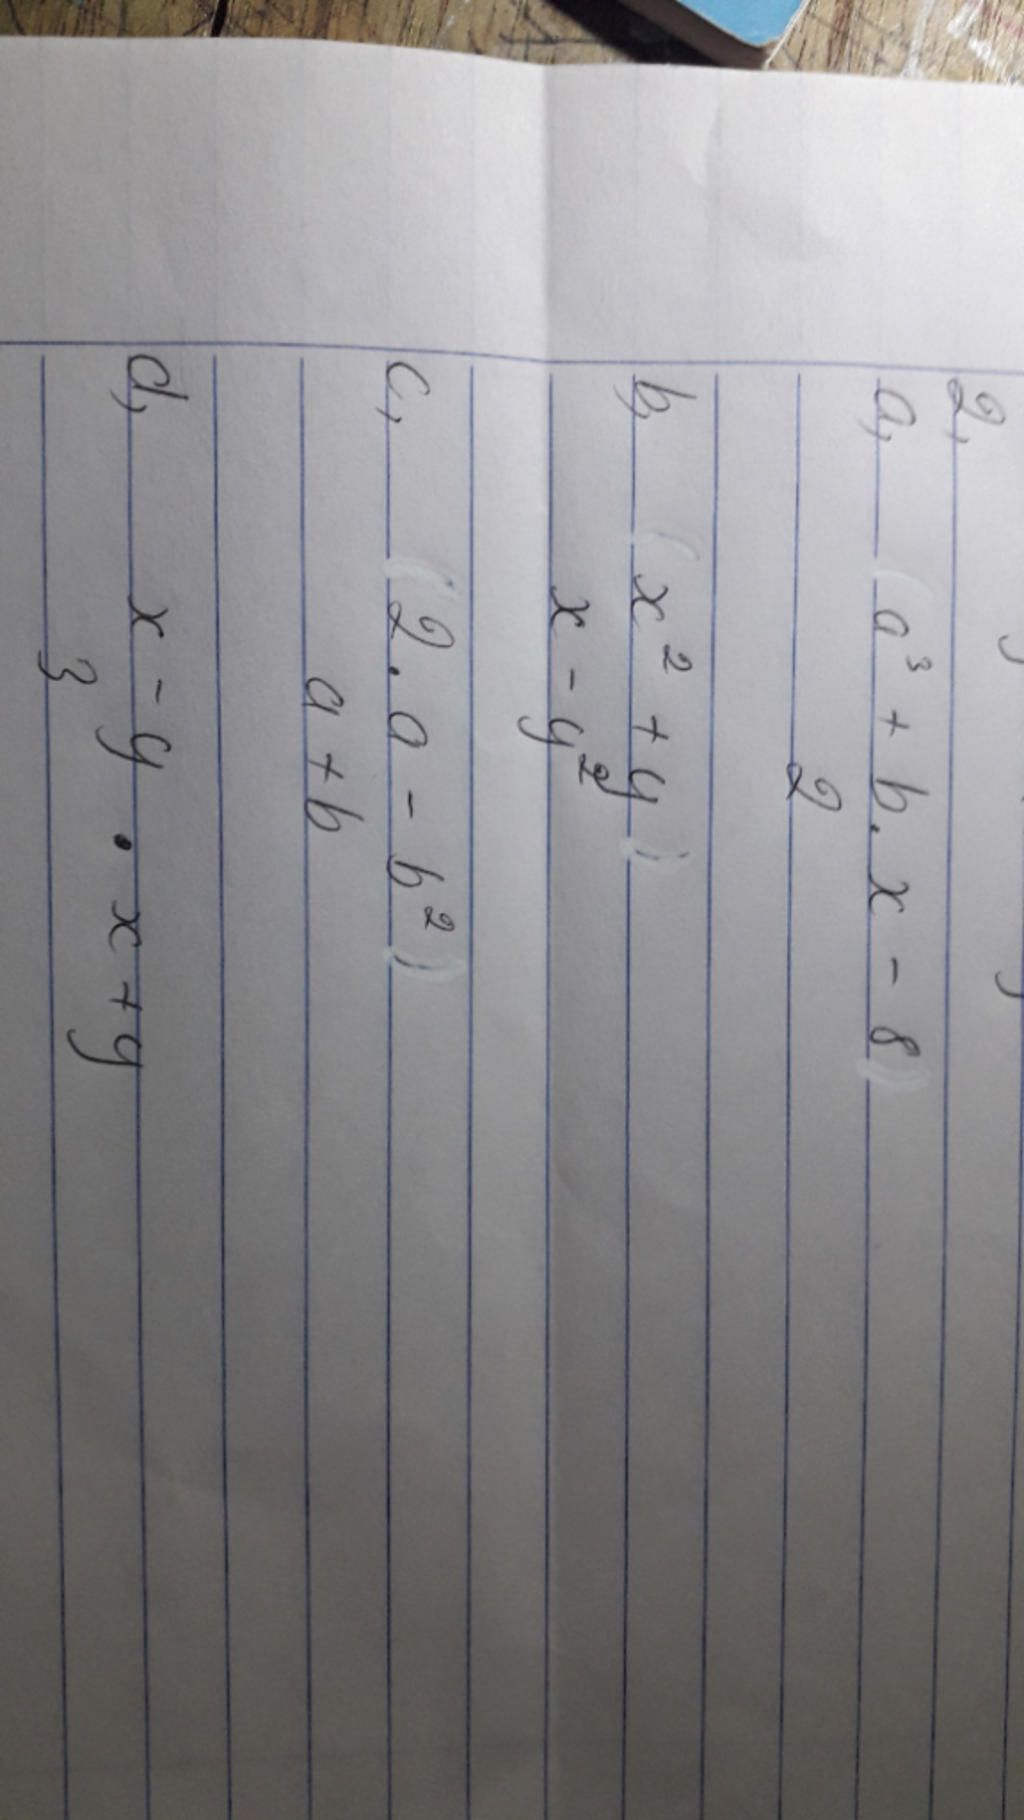 2,
a, (a³ + b. x - 8)
2
b, (x² + y)
x - y²
c, (2. a - b²)
a + b
d, x - y . x + y
3